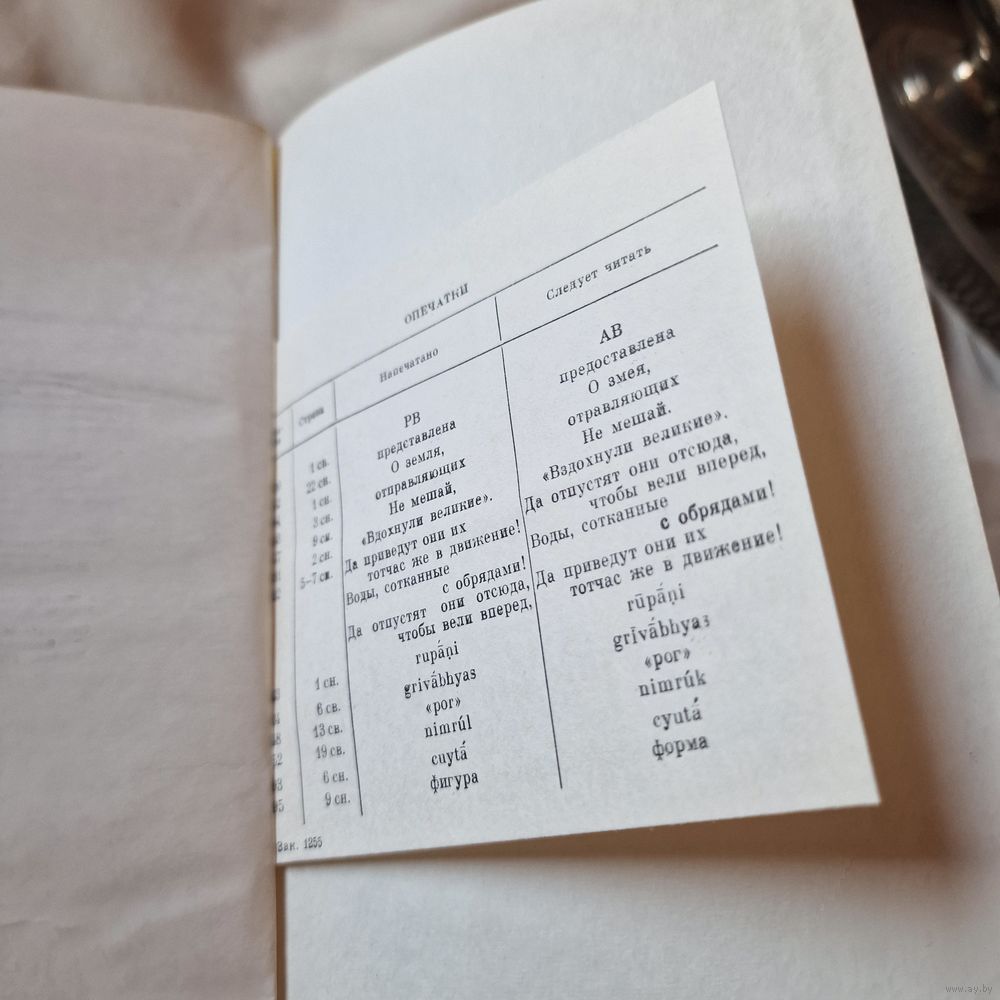 ОПЕЧАТКИ
Строка Напечатано Следует читать
РВ АВ
1 св. представлена предоставлена
22 св. О земля, О змея,
1 сн. отправляющих отравляющих
3 сн. Не мешай, Не мешай.
9 сн. «Вдохнули великие». «Вздохнули великие».
2 сн. Да приведут они их Да отпустят они отсюда,
5—7 сн. тотчас же в движение! чтобы вели вперед,
Воды, сотканные Воды, сотканные
с обрядами! с обрядами!
Да отпустят они отсюда, Да приведут они их
чтобы вели вперед, тотчас же в движение!
1 сн. rupā́ṇi rūpā́ṇi
6 св. grivā́bhyas grīvā́bhyas
13 св. «рог» «рог»
19 св. nimrúl nimrúk
6 сн. cuytā́ cyutā́
9 сн. фигура форма
Зак. 1255
www.ay.by